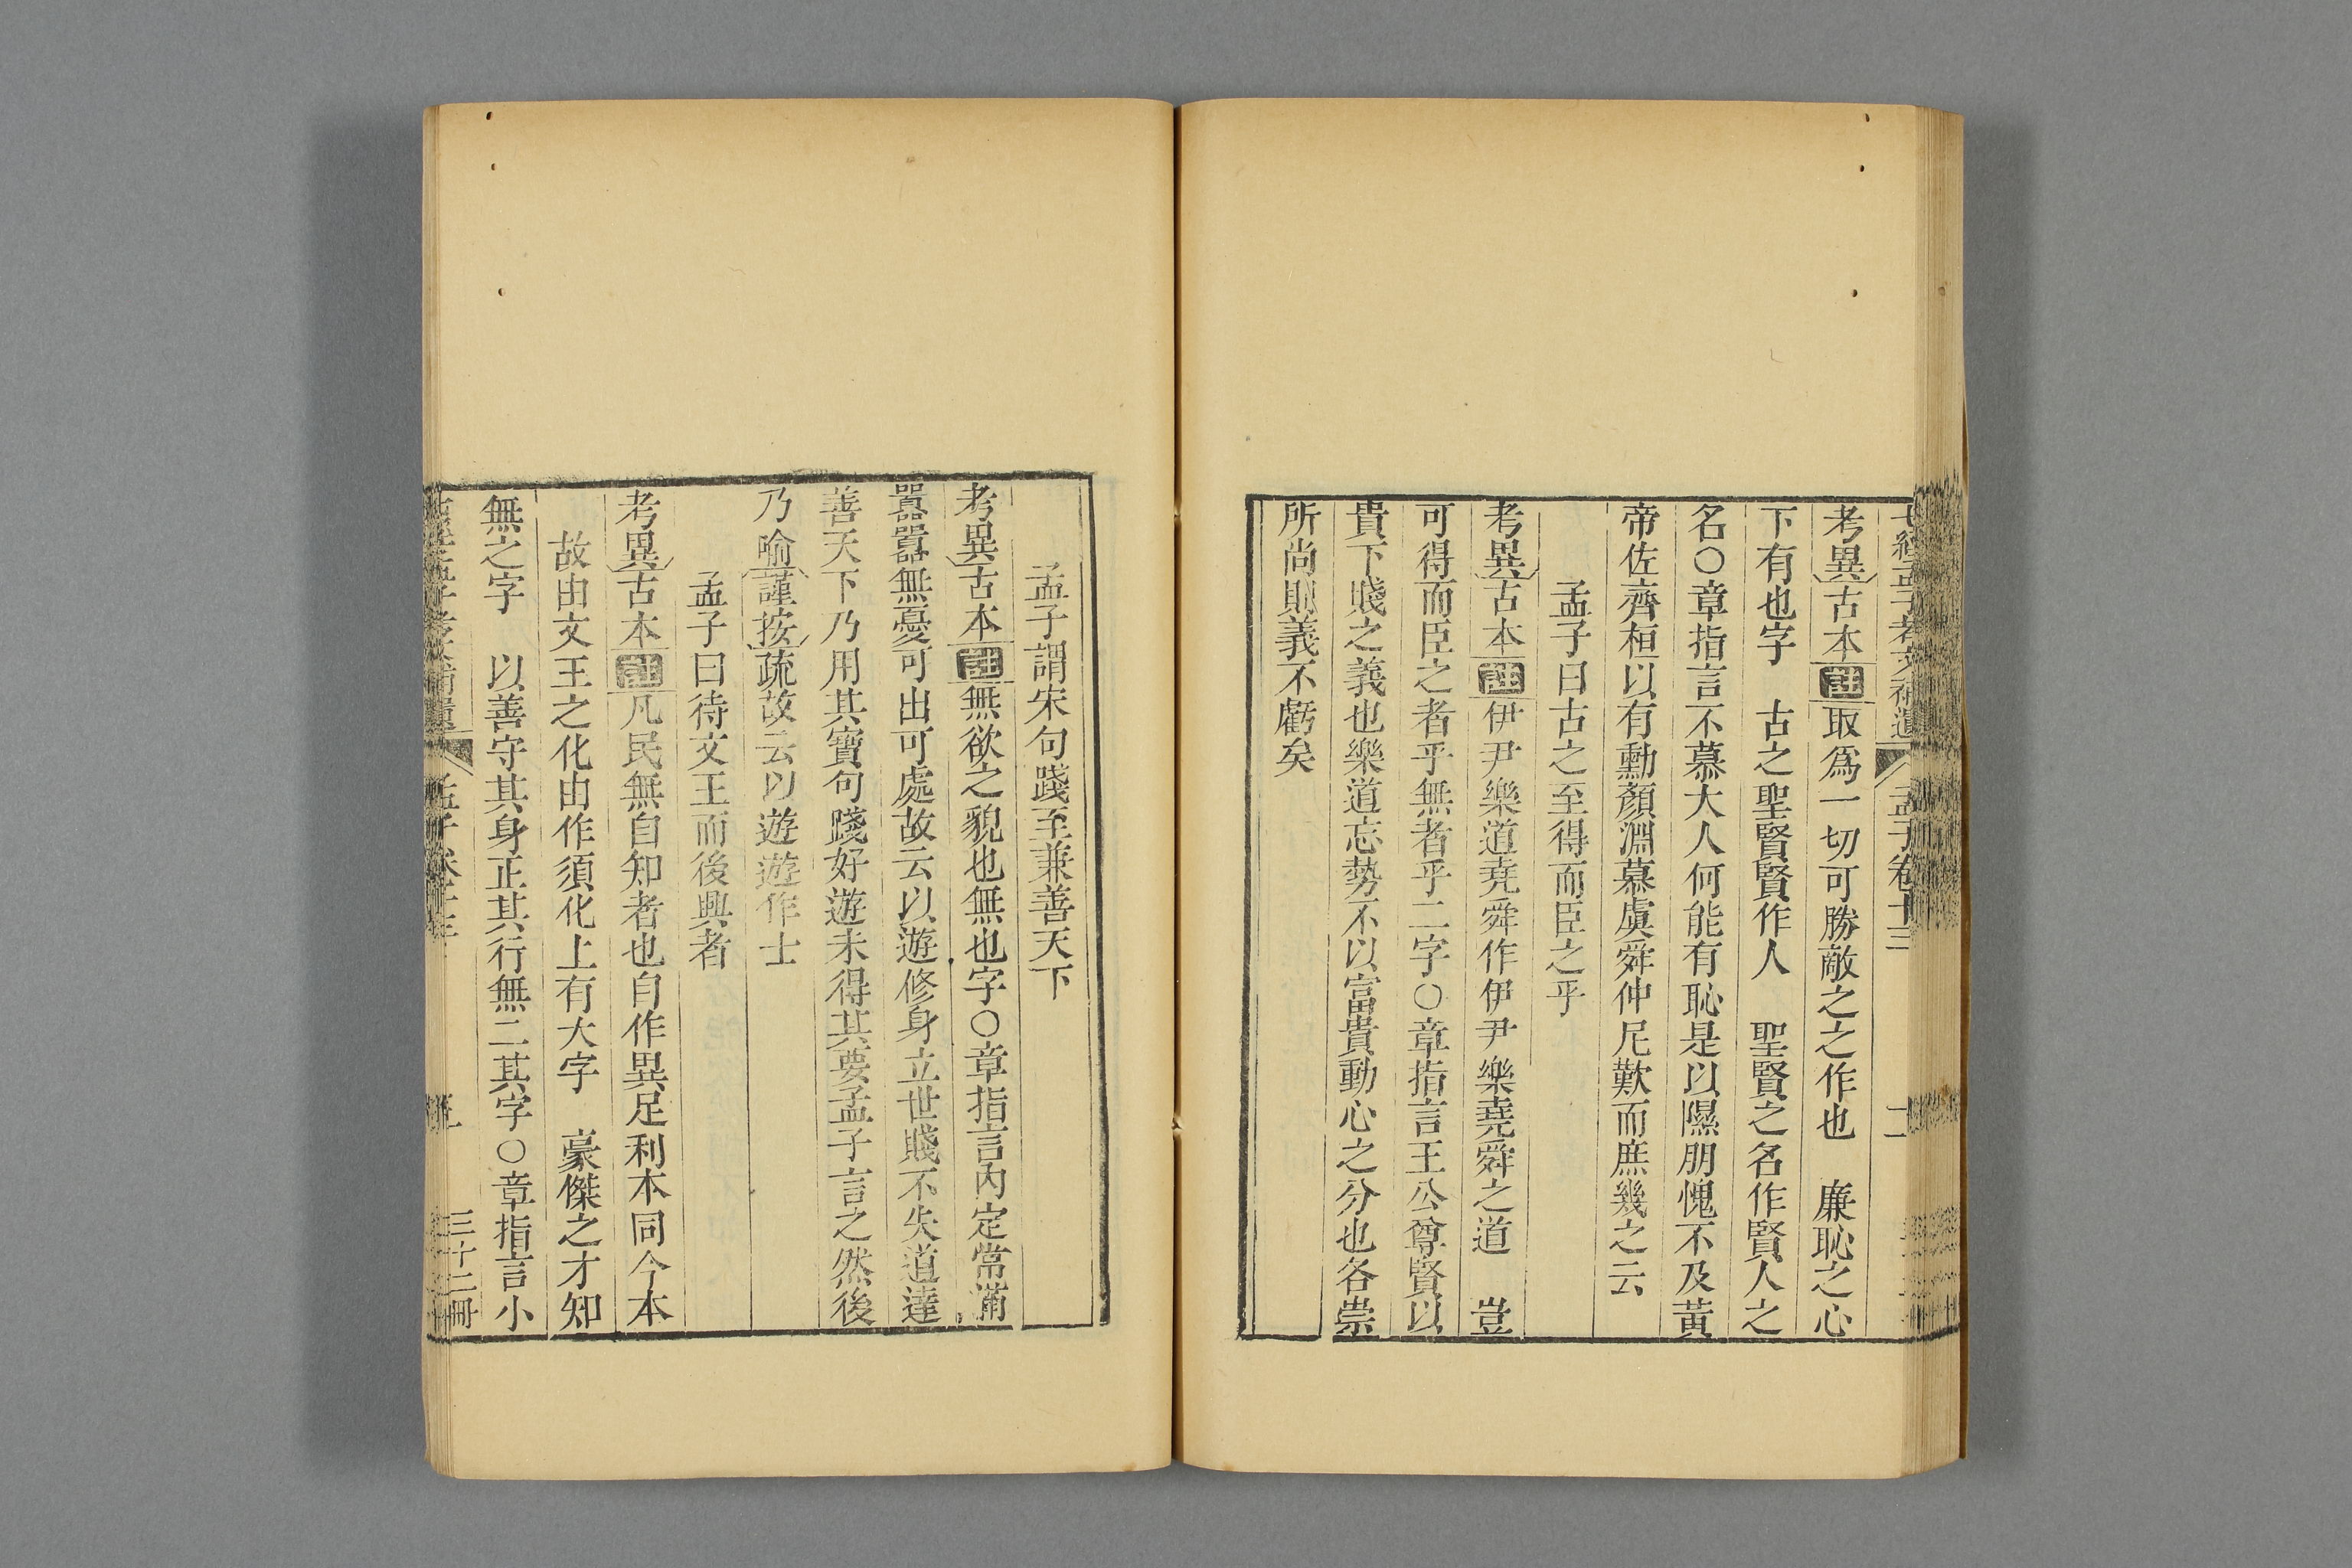 七經孟子考文補遺 孟子卷十三 二
考異古本註取爲一切可勝敵之之作也 廉恥之心
下有也字 古之聖賢賢作人 聖賢之名作賢人之
名○章指言不慕大人何能有恥是以隰朋愧不及黃
帝佐齊桓以有勳顏淵慕虞舜仲尼歎而庶幾之云
孟子曰古之至得而臣之乎
考異古本註伊尹樂道堯舜作伊尹樂堯舜之道 豈
可得而臣之者乎無者乎二字○章指言王公尊賢以
貴下賤之義也樂道忘勢不以富貴動心之分也各崇
所尚則義不虧矣
孟子謂宋句踐至兼善天下
考異古本註無欲之貌也無也字○章指言內定常滿
囂囂無憂可出可處故云以遊修身立世賤不失道達
善天下乃用其寶句踐好遊未得其要孟子言之然後
乃喻謹按疏故云以遊遊作士
孟子曰待文王而後興者
考異古本註凡民無自知者也自作異足利本同今本
故由文王之化由作須化上有大字 豪傑之才知
無之字 以善守其身正其行無二其字○章指言小
三十二冊